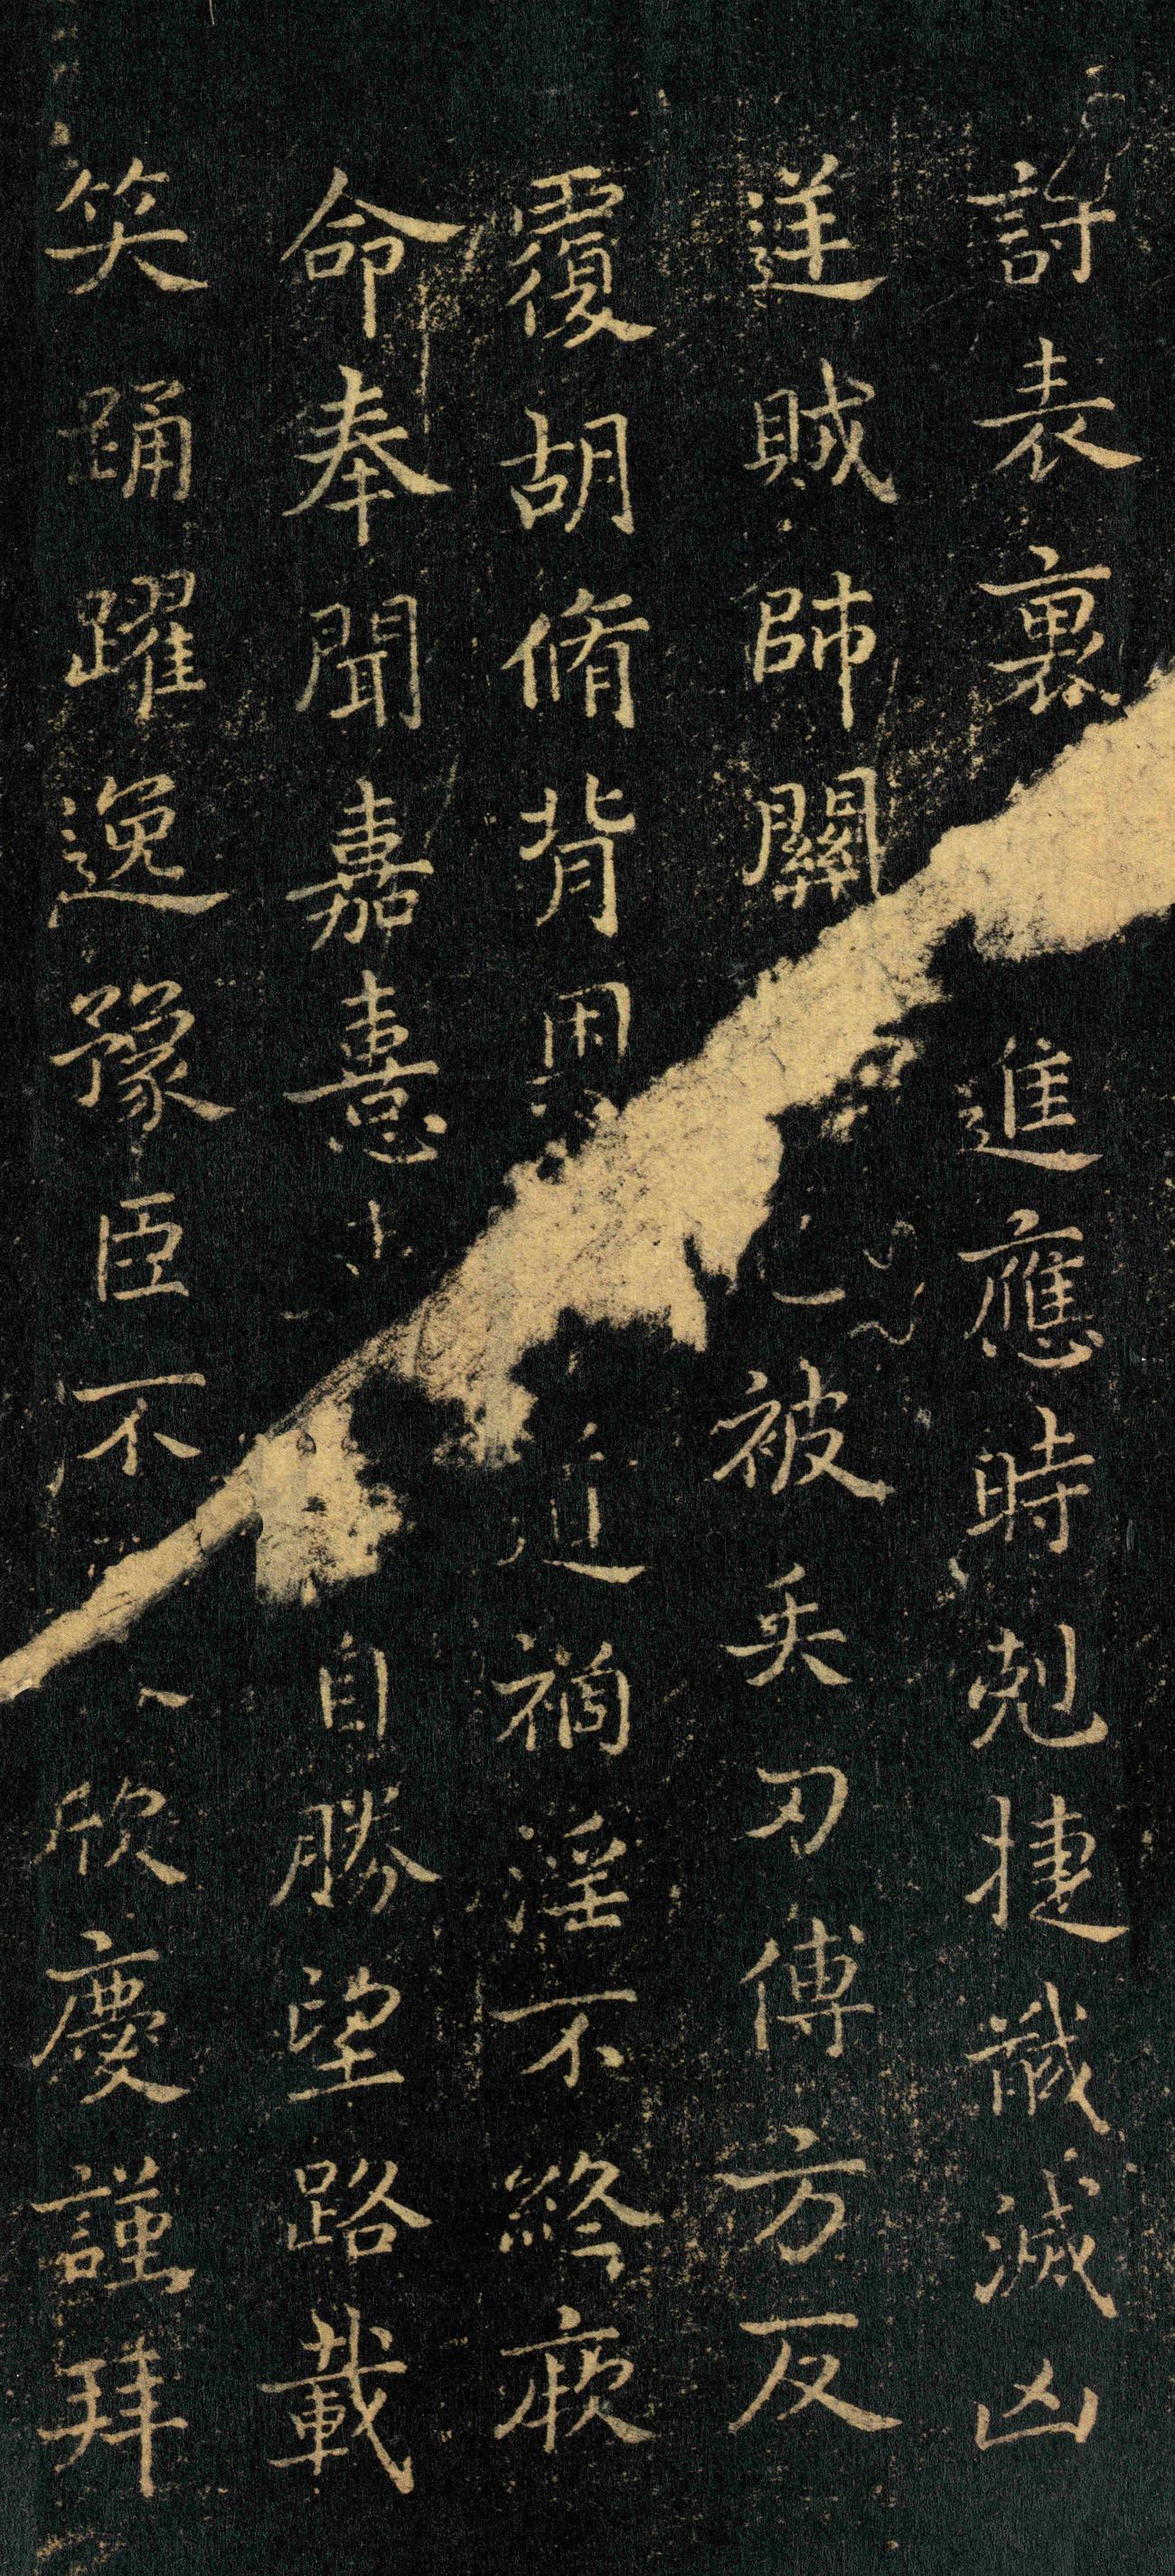 討表裏進應時剋捷馘滅凶
逆賊帥關被矢刃傅方反
覆胡脩背恩禍淫不終厥
命奉聞嘉憙自勝望路載
笑踊躍逸豫臣不欣慶謹拜